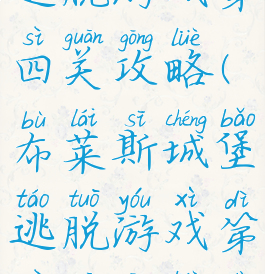 逃脱游戏第
sì guān gōng lüè
四关攻略(
bù lái sī chéng bǎo
布莱斯城堡
táo tuō yóu xì dì
逃脱游戏第